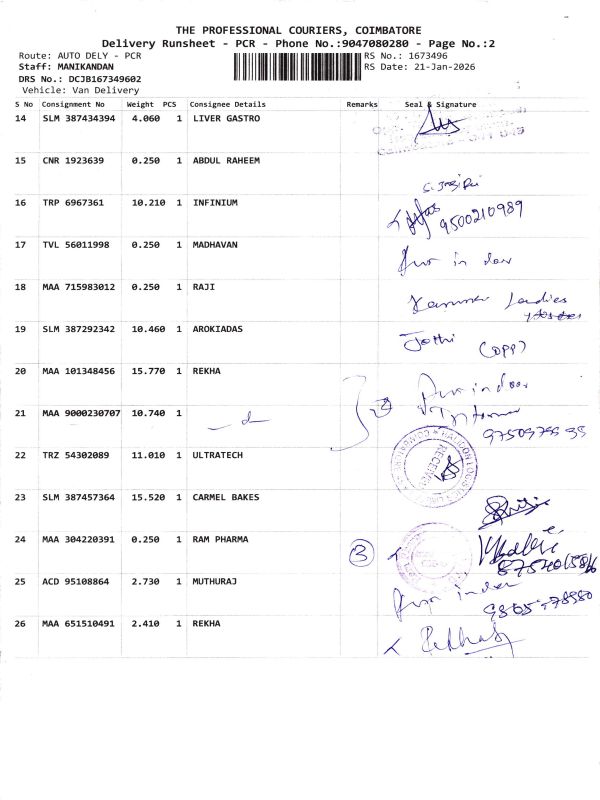 THE PROFESSIONAL COURIERS, COIMBATORE
Delivery Runsheet - PCR - Phone No.:9047080280 - Page No.:2
Route: AUTO DELY - PCR
RS No.: 1673496
Staff: MANIKANDAN
RS Date: 21-Jan-2026
DRS No.: DCJB167349602
Vehicle: Van Delivery
S No Consignment No Weight PCS Consignee Details Remarks Seal & Signature
14 SLM 387434394 4.060 1 LIVER GASTRO
15 CNR 1923639 0.250 1 ABDUL RAHEEM
16 TRP 6967361 10.210 1 INFINIUM
9500210989
17 TVL 56011998 0.250 1 MADHAVAN
in door
18 MAA 715983012 0.250 1 RAJI
Ladies
19 SLM 387292342 10.460 1 AROKIADAS
Jothi (OPP)
20 MAA 101348456 15.770 1 REKHA
in door
21 MAA 9000230707 10.740 1
22 TRZ 54302089 11.010 1 ULTRATECH
RECEIVED
23 SLM 387457364 15.520 1 CARMEL BAKES
24 MAA 304220391 0.250 1 RAM PHARMA
25 ACD 95108864 2.730 1 MUTHURAJ
26 MAA 651510491 2.410 1 REKHA
Rekha